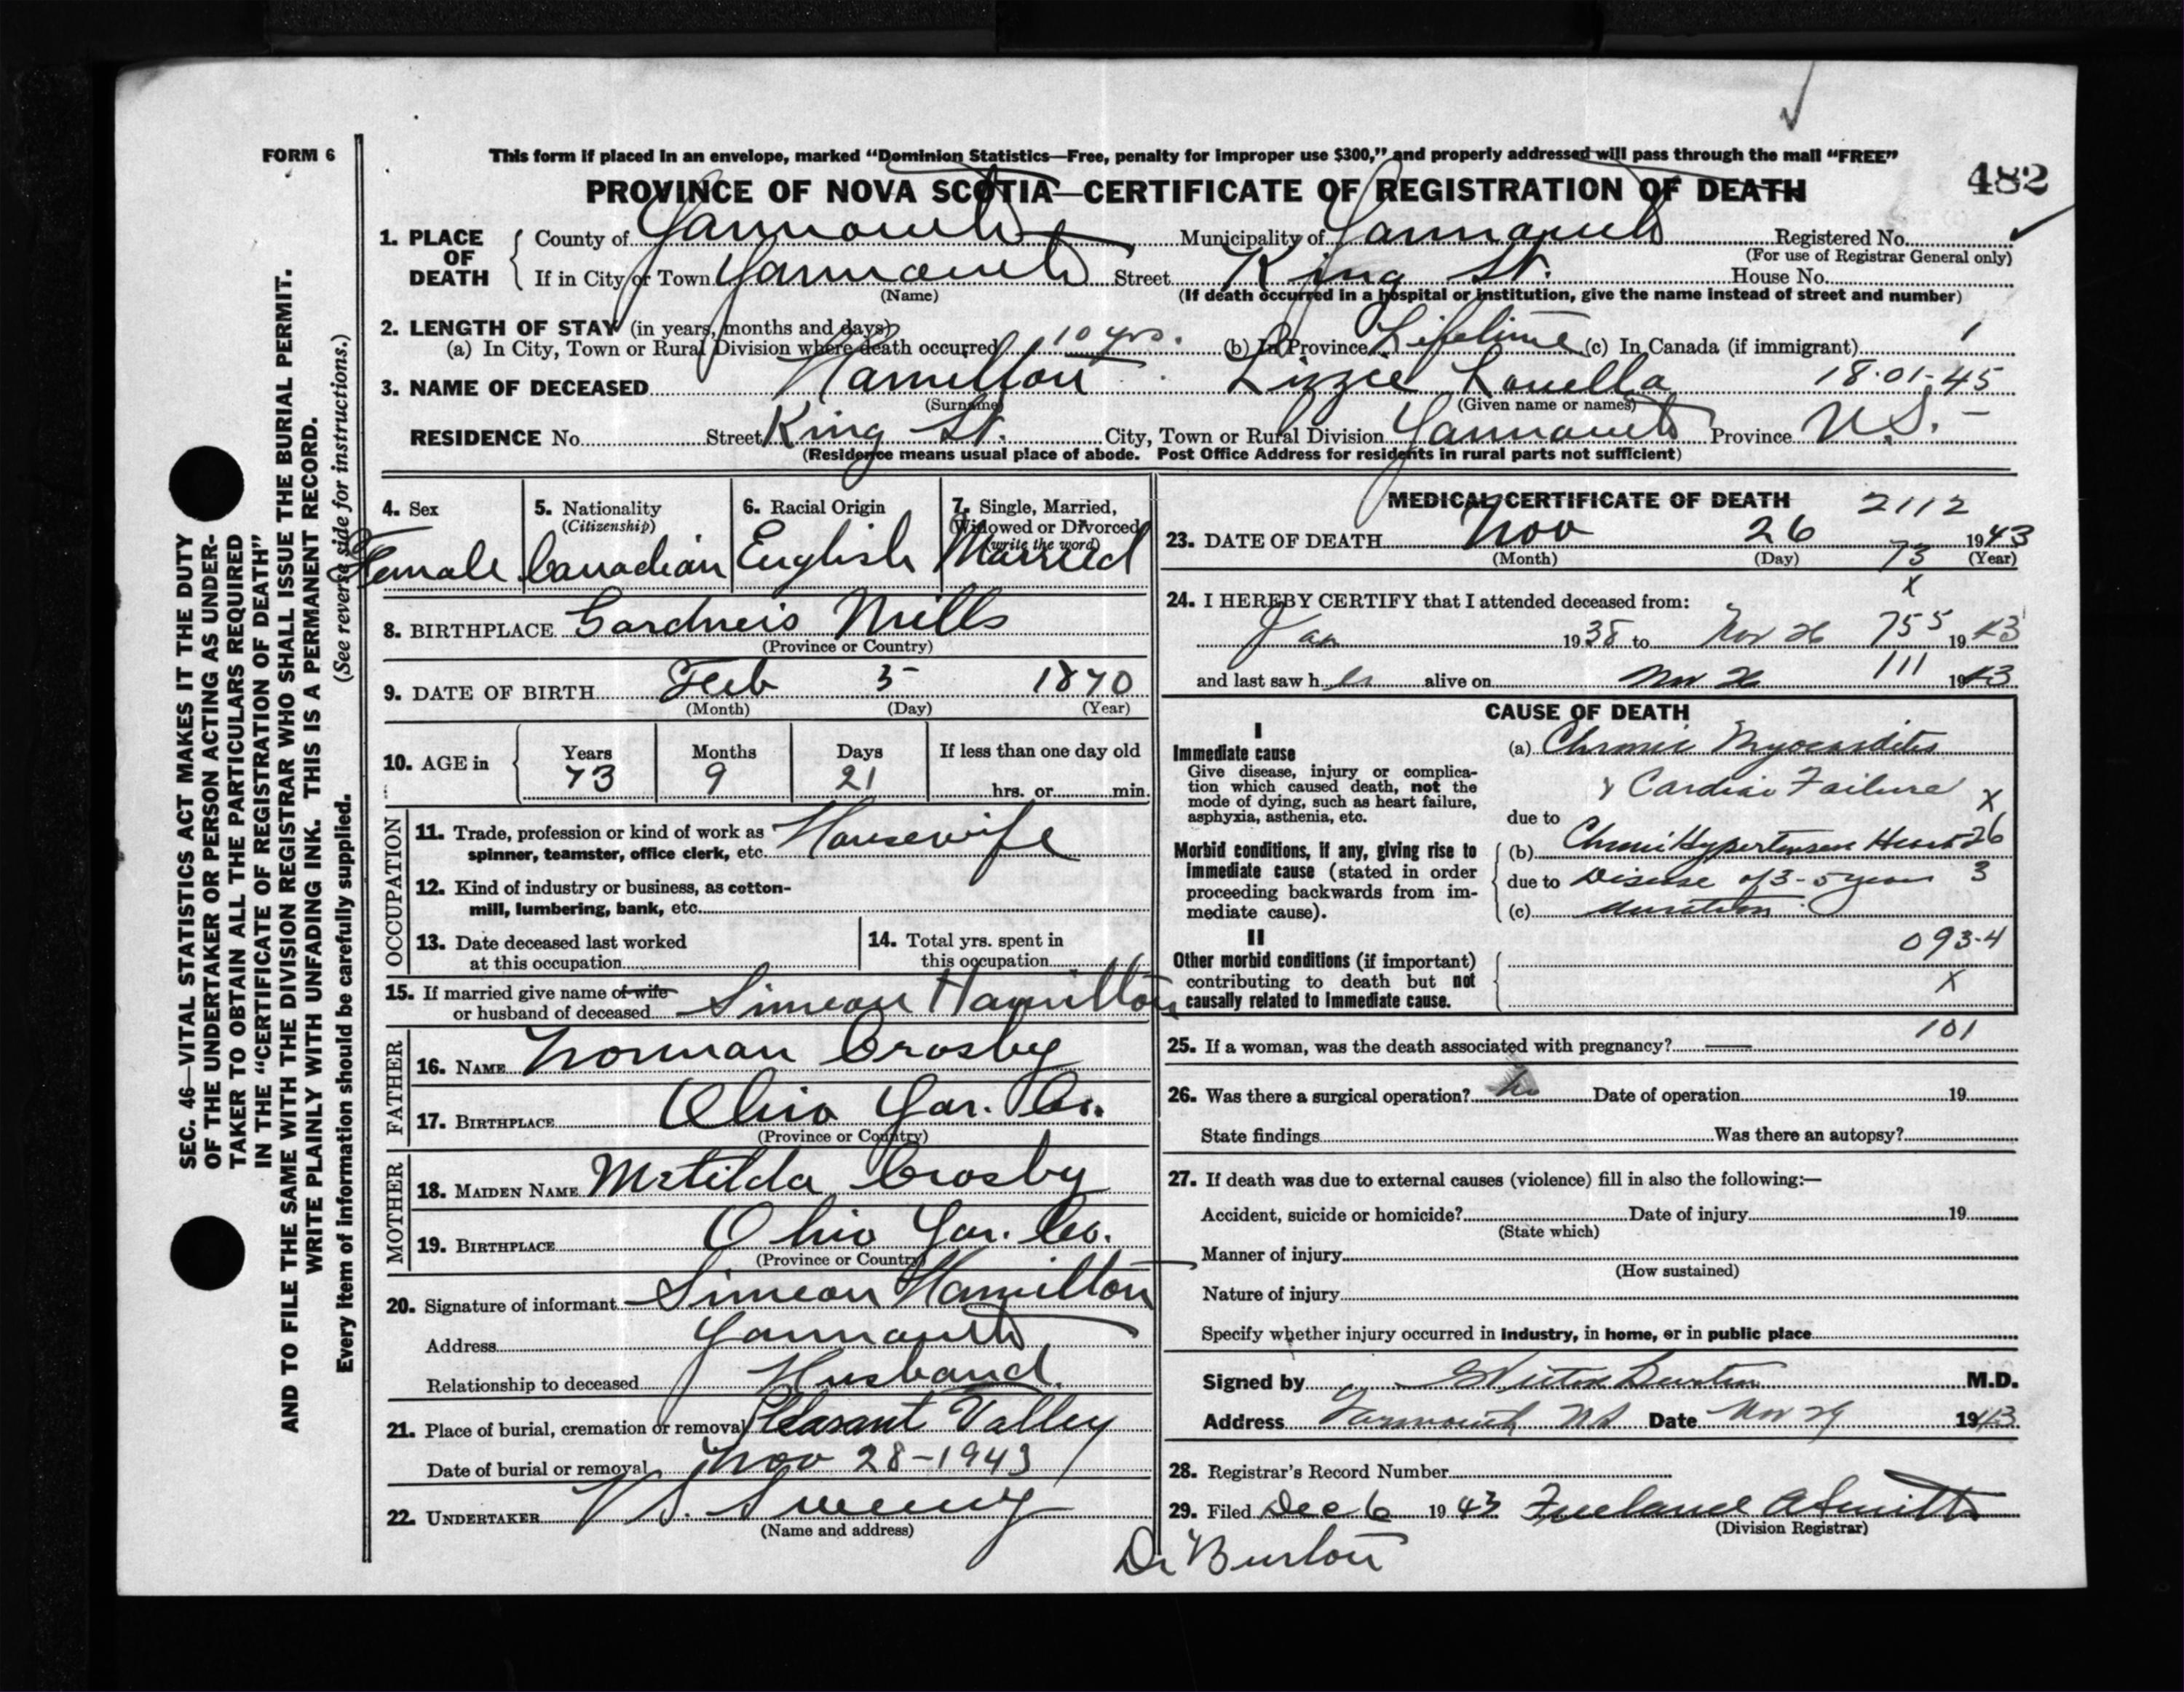 FORM 6
This form if placed in an envelope, marked "Dominion Statistics—Free, penalty for improper use $300," and properly addressed will pass through the mail "FREE"
PROVINCE OF NOVA SCOTIA—CERTIFICATE OF REGISTRATION OF DEATH
482
1. PLACE OF DEATH { County of Yarmouth Municipality of Yarmouth Registered No.
(For use of Registrar General only)
If in City or Town Yarmouth Street King St. House No.
(Name) (If death occurred in a hospital or institution, give the name instead of street and number)
2. LENGTH OF STAY (in years, months and days)
(a) In City, Town or Rural Division where death occurred 10 yrs. (b) In Province Lifetime (c) In Canada (if immigrant) 1
3. NAME OF DECEASED Hamilton Lizzie Louella 18-01-45
(Surname) (Given name or names)
RESIDENCE No. Street King St. City, Town or Rural Division Yarmouth Province N.S.
(Residence means usual place of abode. Post Office Address for residents in rural parts not sufficient)
4. Sex 5. Nationality (Citizenship) 6. Racial Origin 7. Single, Married, Widowed or Divorced (write the word)
Female Canadian English Married
8. BIRTHPLACE Gardners Mills
(Province or Country)
9. DATE OF BIRTH Feb 5 1870
(Month) (Day) (Year)
10. AGE in { Years Months Days If less than one day old
73 9 21 hrs. or min.
OCCUPATION
11. Trade, profession or kind of work as
spinner, teamster, office clerk, etc. Housewife
12. Kind of industry or business, as cotton-
mill, lumbering, bank, etc.
13. Date deceased last worked
at this occupation
14. Total yrs. spent in
this occupation
15. If married give name of wife
or husband of deceased Simeon Hamilton
FATHER
16. NAME Norman Crosby
17. BIRTHPLACE Ohio Yar. Co.
(Province or Country)
MOTHER
18. MAIDEN NAME Matilda Crosby
19. BIRTHPLACE Ohio Yar. Co.
(Province or Country)
20. Signature of informant Simeon Hamilton
Address Yarmouth
Relationship to deceased Husband.
21. Place of burial, cremation or removal Pleasant Valley
Date of burial or removal Nov 28-1943
22. UNDERTAKER V S. Sweeny
(Name and address)
MEDICAL CERTIFICATE OF DEATH 2112
23. DATE OF DEATH Nov 26 1943
(Month) (Day) 73 (Year)
x
24. I HEREBY CERTIFY that I attended deceased from:
Jan 1938 to Nov 26 755 1943
and last saw her alive on Nov 26 111 1943
CAUSE OF DEATH
I
Immediate cause
Give disease, injury or complica-
tion which caused death, not the
mode of dying, such as heart failure,
asphyxia, asthenia, etc.
(a) Chronic Myocarditis
& Cardiac Failure X
due to
Morbid conditions, if any, giving rise to
immediate cause (stated in order
proceeding backwards from im-
mediate cause).
(b) Chronic Hypertensen Heart 26
due to Disease of 3-5 years 3
(c) duration
II
Other morbid conditions (if important)
contributing to death but not
causally related to immediate cause.
093-4
X
101
25. If a woman, was the death associated with pregnancy? —
26. Was there a surgical operation? no Date of operation 19
State findings Was there an autopsy?
27. If death was due to external causes (violence) fill in also the following:—
Accident, suicide or homicide? Date of injury 19
(State which)
Manner of injury
(How sustained)
Nature of injury
Specify whether injury occurred in industry, in home, or in public place
Signed by Burton M.D.
Address Yarmouth NS Date Nov 29 1943
28. Registrar's Record Number
29. Filed Dec 6 1943 Freelance A Smith
(Division Registrar)
Dr Burton
SEC. 46—VITAL STATISTICS ACT MAKES IT THE DUTY
OF THE UNDERTAKER OR PERSON ACTING AS UNDER-
TAKER TO OBTAIN ALL THE PARTICULARS REQUIRED
IN THE "CERTIFICATE OF REGISTRATION OF DEATH"
AND TO FILE THE SAME WITH THE DIVISION REGISTRAR WHO SHALL ISSUE THE BURIAL PERMIT.
WRITE PLAINLY WITH UNFADING INK. THIS IS A PERMANENT RECORD.
Every item of information should be carefully supplied. (See reverse side for instructions.)